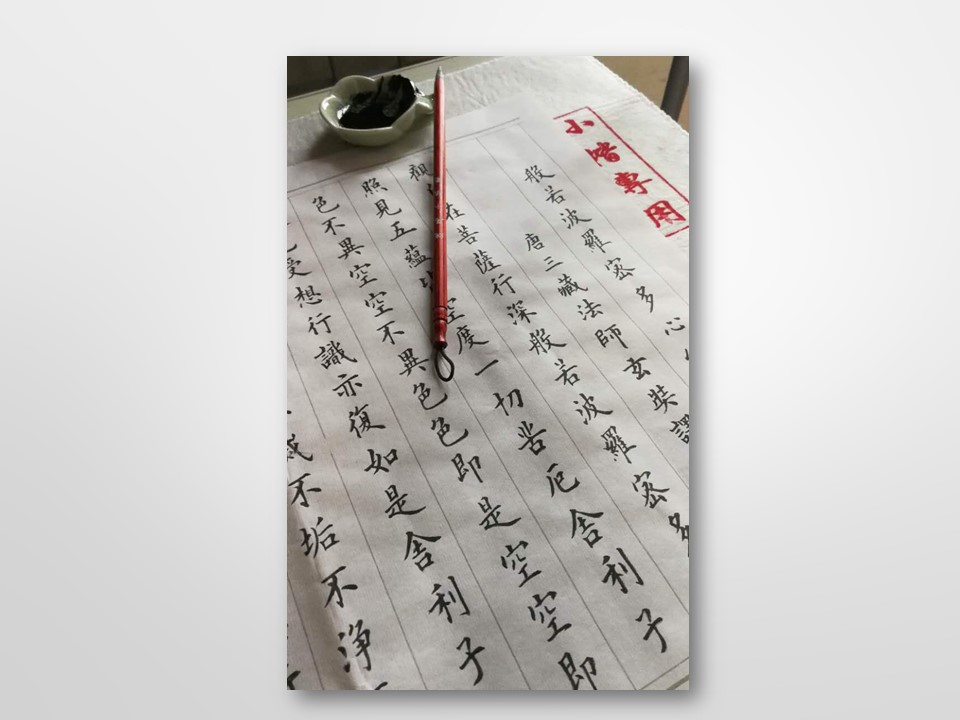 小楷專用
般若波羅密多心
唐三藏法師玄奘譯
觀在菩薩行深般若波羅密多
照見五蘊皆空度一切苦厄舍利子
色不異空空不異色色即是空空即
受想行識亦復如是舍利子
滅不垢不淨